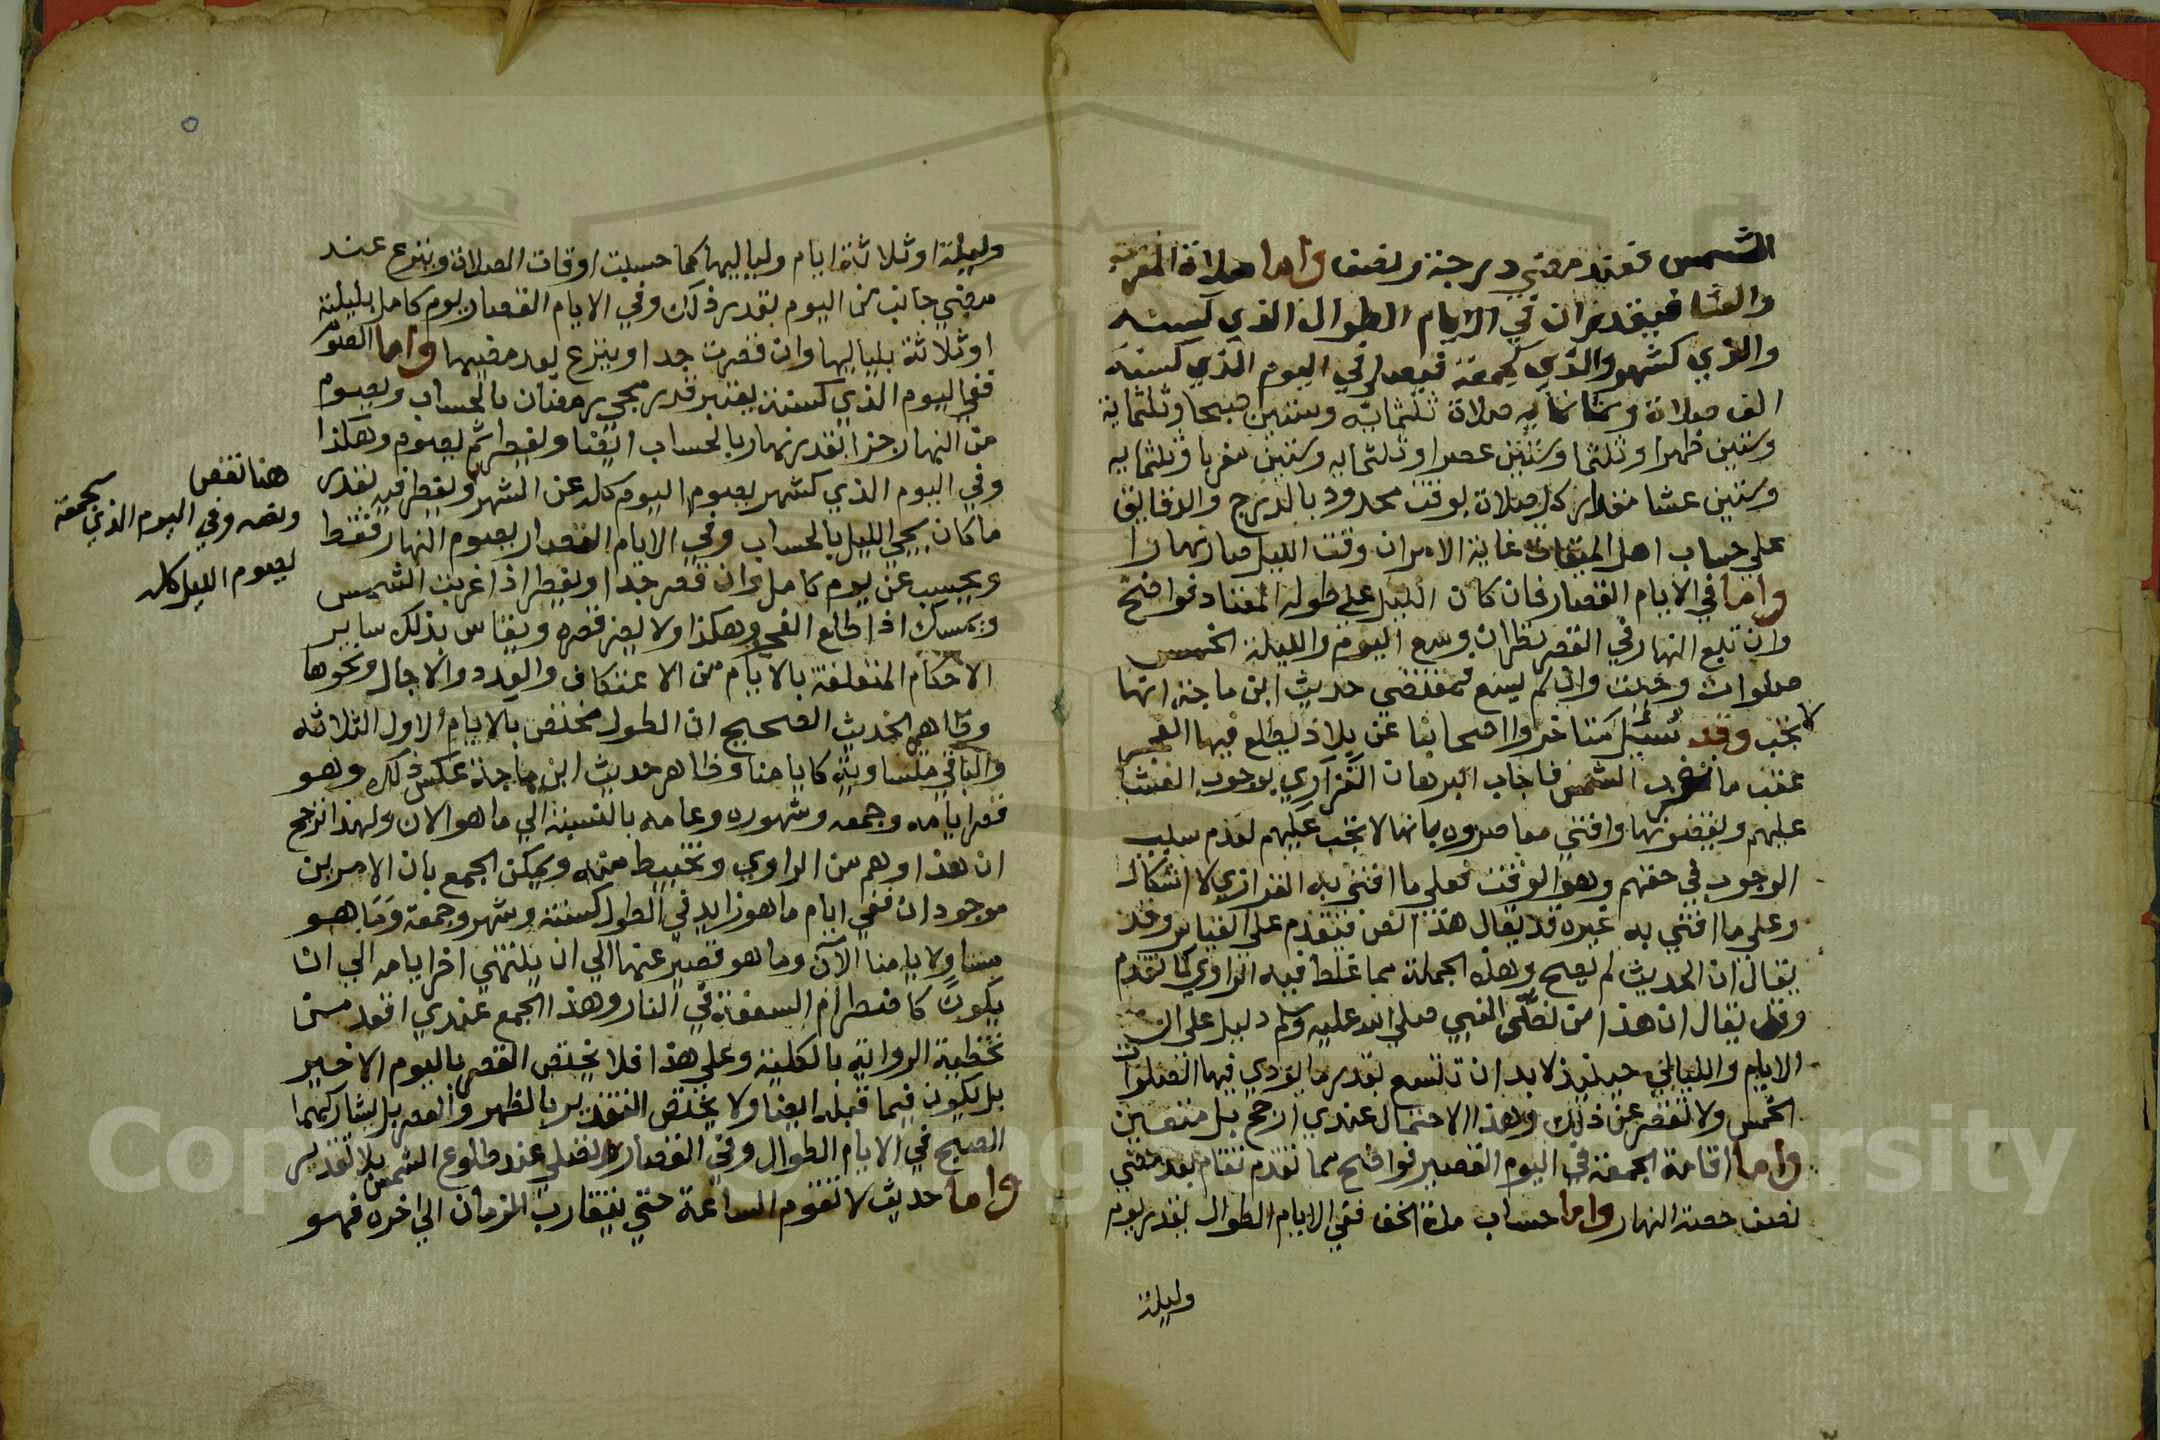 الشمس فعند مضي درجة ونصف واما صلاة المغرب
والعشا فيقدران في الايام الطوال الذي كسنه
والذي كشهر والذي كجمعة فيصلي في اليوم الذي كسنه
الف صلاة وثمانمايه صلاة ثلثمايه وستين صبحا وثلثماية
وستين ظهرا وثلثما وستين عصرا وثلثمايه وستين مغربا وثلثمايه
وستين عشا مقدار كل صلاة بوقت محدود بالدرج والدقايق
علي حساب اهل الميقات غاية الامر ان وقت الليل صار نهارا
واما في الايام القصار فان كان الليل علي طوله المعتاد فواضح
وان تبع النهار في القصر نظران وسع اليوم والليلة الخمس
صلوات وجبت وان لم يسع فمقتضي حديث ابن ماجة انها
لا تجب وقد سئل متاخروا اصحابنا عن بلاد يطلع فيها الفجر
عقب ما تغرب الشمس فاجاب البرهان الفزاري بوجوب العشا
عليهم ويقضونها وافتي معاصروه بانها لا تجب عليهم لعدم سبب
الوجوب في حقهم وهو الوقت فعلي ما افتي به الفزاري لا اشكال
وعلي ما افتي به غيره قد يقال هذا نص فيقدم علي القياس وقد
يقال ان الحديث لم يصح وهذه الجملة مما غلط فيه الراوي كما تقدم
وقد يقال ان هذا من النبي صلي الله عليه وسلم دليل علي ان
الايام والليالي حينيذ لا بد ان تتسع بقدر ما يودي فيها الصلوات
الخمس ولا تقصر عن ذلك وهذا الاحتمال عندي ارجح بل متعين
واما اقامة الجمعة في اليوم القصير فواضح مما تقدم تقام بعد مضي
نصف حصة النهار واما حساب مدة الخف ففي الايام الطوال بقدر يوم
وليلة
وليلة او ثلاثة ايام ولياليها كما حسبت اوقات الصلاة وينزع عند
مضي جانب من اليوم بقدر ذلك وفي الايام القصار يوم كامل بليلته
او ثلاثة بلياليها وان قصرت جدا وينزع بعد مضيها واما الصوم
ففي اليوم الذي كسنة يعتبر قدر مجي رمضان بالحساب ويصوم
من النهار جزا بقدر نهار بالحساب ايضا ويفطر ثم يصوم وهكذا
وفي اليوم الذي كشهر يصوم اليوم كله عن الشهر ويفطر فيه بقدر
ما كان يجي الليل بالحساب وفي الايام القصار يصوم النهار فقط
ويحسب عن يوم كامل وان قصر جدا ويفطر اذا غربت الشمس
ويمسك اذا طلع الفجر وهكذا ولا يضر قصره ويقاس بذلك ساير
الاحكام المتعلقة بالايام من الاعتكاف والعدد والاجال ونحوها
وظاهر الحديث الصحيح ان الطول مختص بالايام الاول الثلاثه
والباقي متساوية كايامنا وظاهر حديث ابن ماجة عكس ذلك وهو
قصر ايامه وجمعه وشهوره وعامه بالنسبة الي ما هو الان ولهذا نرجح
ان هذا وهم من الراوي وتخبيط منه ويمكن الجمع بان الامرين
موجودان ففي ايام ما هو زايد في الطول كسنة وشهر وجمعة وما هو
مساو لايامنا الآن وما هو قصير عنها الي ان ينتهي اخر ايامه الي ان
يكون كاضطرام السعفة في النار وهذا الجمع عندي اقعد من
تخطية الرواية بالكلية وعلي هذا فلا يختص القصر باليوم الاخير
بل يكون فيما قبله ايضا ولا يختص التقدير بالظهر والعصر بل يشاركهما
الصبح في الايام الطوال وفي القصار تصلي عند طلوع الشمس بلا تقدير
واما حديث لا تقوم الساعة حتي يتقارب الزمان الي اخره فهو
هنا نقص
ونصه وفي اليوم الذي كجمعة
يصوم الليل كله
Copyright © King Saud University